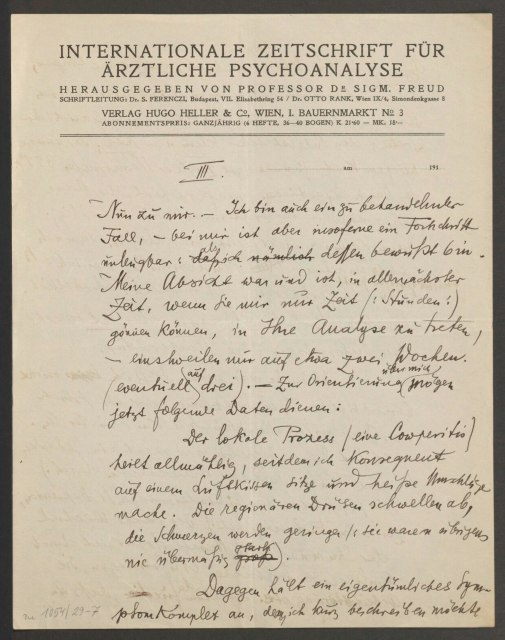 INTERNATIONALE ZEITSCHRIFT FÜR
ÄRZTLICHE PSYCHOANALYSE
HERAUSGEGEBEN VON PROFESSOR DR SIGM. FREUD
SCHRIFTLEITUNG: Dr. S. FERENCZI, Budapest, VII. Elisabethring 54 / Dr. OTTO RANK, Wien IX/4, Simondenkgasse 8
VERLAG HUGO HELLER & Co, WIEN, I. BAUERNMARKT No 3
ABONNEMENTSPREIS: GANZJÄHRIG (6 HEFTE, 36—40 BOGEN) K 21·60 = MK. 18·—
am 191
III.
Nun zu mir. — Ich bin auch ein zu behandelnder
Fall, — bei mir ist aber insoferne ein Fortschritt
unleugbar: als ich nämlich dessen bewußt bin.
Meine Absicht war und ist, in allernächster
Zeit, wenn Sie mir nur Zeit (: Stunden :)
gönnen können, in Ihre Analyse zu treten,
— einstweilen nur auf etwa zwei Wochen.
(eventuell auf drei). — Zur Orientierung über mich mögen
jetzt folgende Daten dienen:
Der lokale Prozess (eine Cowperitis)
heilt allmählig, seitdem ich konsequent
auf einem Luftkissen sitze und heiße Umschläge
mache. Die regionären Drüsen schwellen ab,
die Schmerzen werden geringer (: sie waren übrigens
nie übermäßig stark groß).
Dagegen hält ein eigentümliches Sym-
ptomkomplex an, den ich kurz beschreiben möchte
1054/29-7